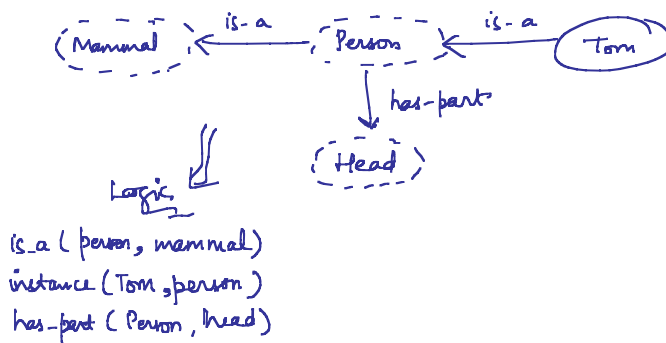 is-a
is-a
Mammal
Person
Tom
has-part
Head
Logic
is_a (person, mammal)
instance (Tom, person)
has-part (Person, head)